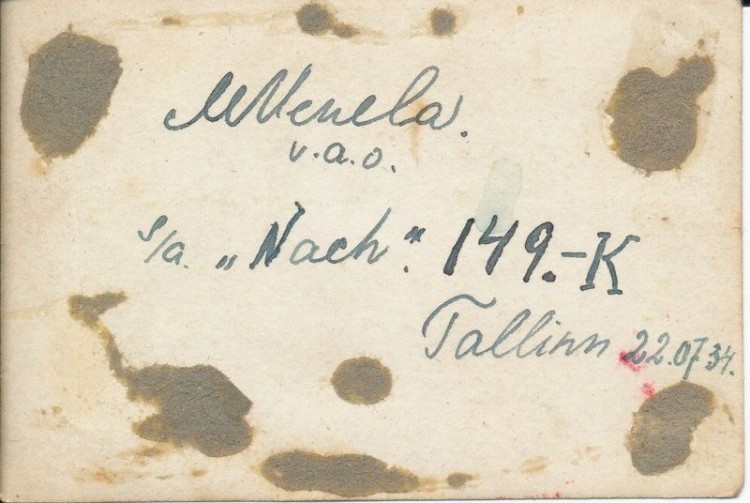 v.a.o.
s/a. „Nach". 149.-K
Tallinn 22.07 34.